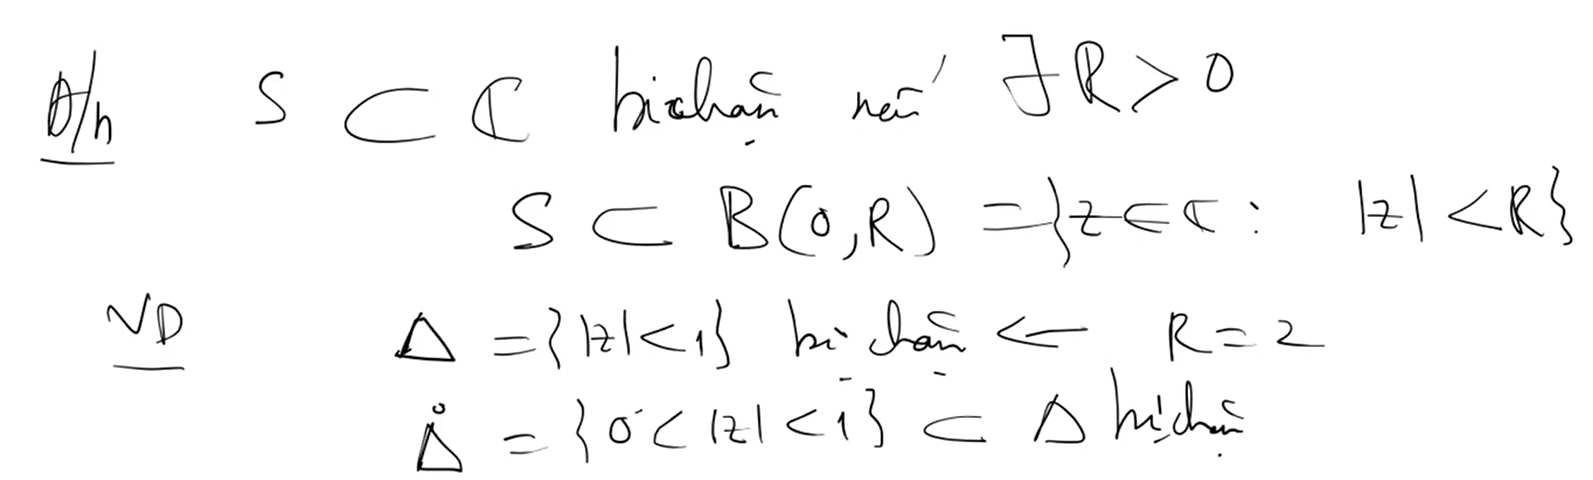 Đ/n S ⊂ ℂ bị chặn nếu ∃ R > 0
S ⊂ B(0,R) = {z ∈ ℂ : |z| < R}
VD Δ = {|z| < 1} bị chặn ← R = 2
Δ̊ = {0 < |z| < 1} ⊂ Δ bị chặn